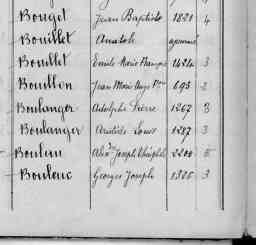 Bouget Jean Baptiste 1821 4
Bouillet Anatole ajourné
Bouillet Emile Marie François 1424 3
Bouillon Jean Marie 693 2
Boulanger Adolphe Pierre 1267 3
Boulanger Aristide Louis 1287 3
Bouleau Joseph 2200 5
Bouleuc Georges Joseph 1326 3